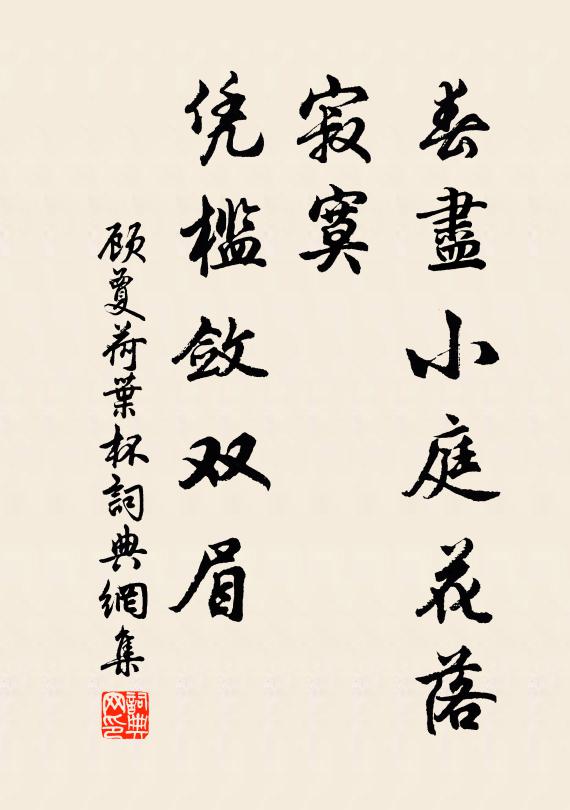 春盡小庭花落
寂寞
凭檻斂双眉
顾夐荷葉杯詞典網集
詞典網印